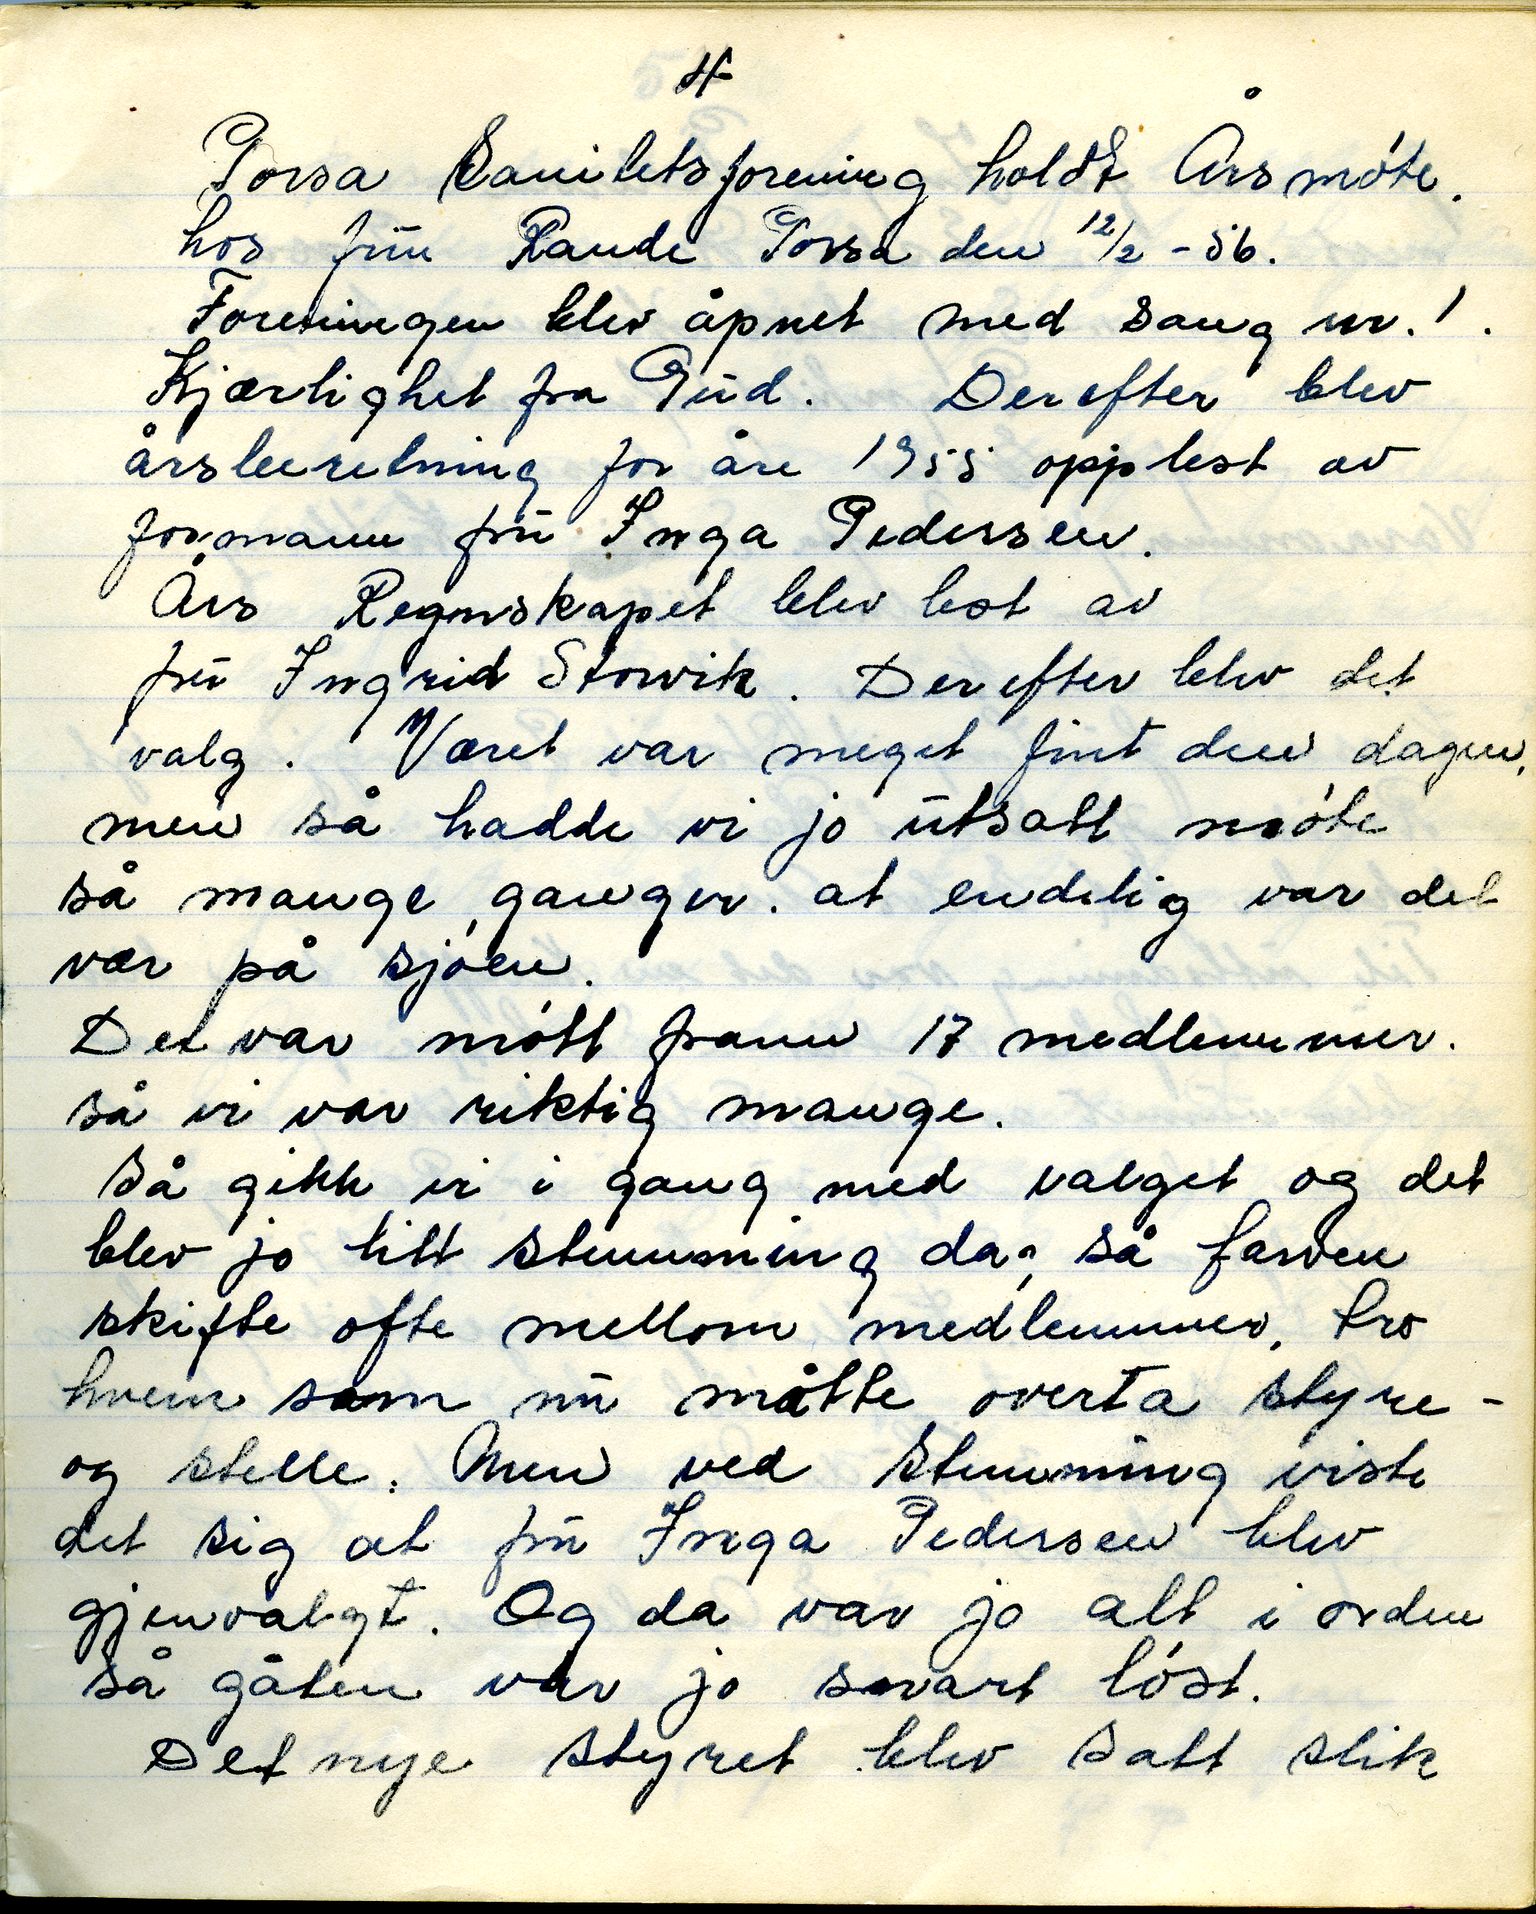 4
Porsa Sanitetsforening holdt Årsmøte.
hos frū Raude Porsa den 12/2 - 56.
Foreningen blev åpnet med sang nr. 1.
Kjærlighet fra Gūd. Derefter blev
årsberetning for åre 1955 opplest av
formann frū Inga Pedersen.
Års Regnskapet blev lest av
frū Ingrid Storvik. Derefter blev det
valg. Været var meget fint den dagen,
men så hadde vi jo ūtsatt møte
så mange ganger. at endelig var det
vær på sjøen.
Det var møtt fram 17 medlemmer.
så vi var riktig mange.
Så gikk vi i gang med valget og det
blev jo litt stemming da, så farven
skifte ofte mellom medlemmer, tro
hvem som nū måtte overta styre -
og stelle. Men ved stemming viste
det sig at frū Inga Pedersen blev
gjenvalgt. Og da var jo alt i orden
så gåten var jo snart løst.
Det nye styret blev satt slik